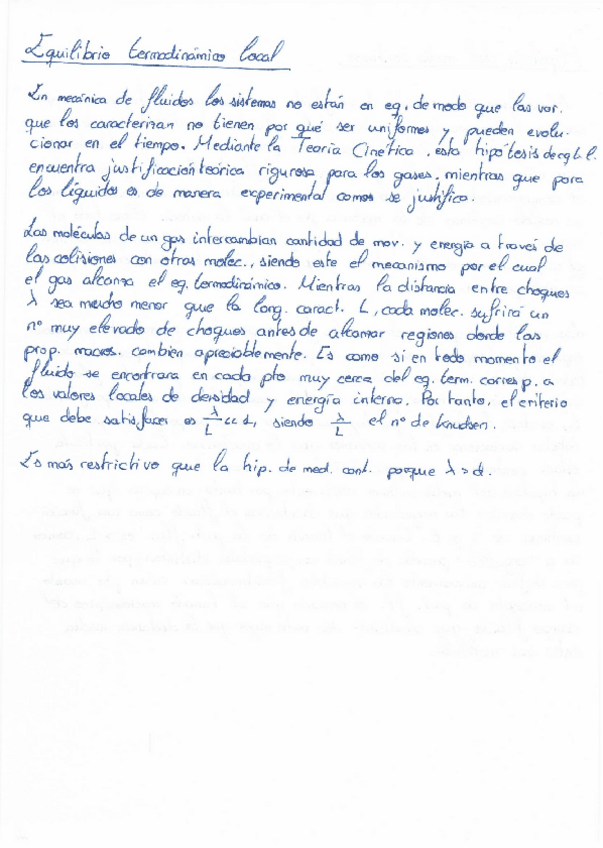 Equilibrio termodinámico local
En mecánica de fluidos los sistemas no están en eq. de modo que las var.
que los caracterizan no tienen por qué ser uniformes y pueden evolu-
cionar en el tiempo. Mediante la Teoría Cinética, esta hipótesis de eq. t. l.
encuentra justificación teórica rigurosa para los gases, mientras que para
los líquidos es de manera experimental como se justifica.
Las moléculas de un gas intercambian cantidad de mov. y energía a través de
las colisiones con otras molec., siendo este el mecanismo por el cual
el gas alcanza el eq. termodinámico. Mientras la distancia entre choques
λ sea mucho menor que la long. caract. L, cada molec. sufrirá un
nº muy elevado de choques antes de alcanzar regiones donde las
prop. macros. cambien apreciablemente. Es como si en todo momento el
fluido se encontrara en cada pto muy cerca del eq. term. corresp. a
los valores locales de densidad y energía interna. Por tanto, el criterio
que debe satisfacer es λ/L << 1, siendo λ/L el nº de Knudsen.
Es más restrictivo que la hip. de med. cont. porque λ > d.